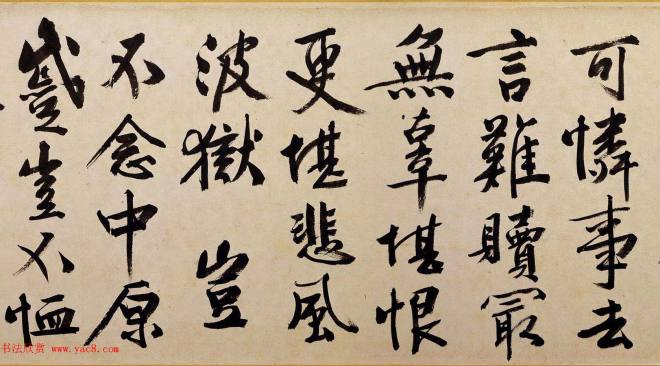 可憐事去
言難贖冣
無辜堪恨
更堪悲風
波獄 豈
不念中原
蹙豈不恤
书法欣赏 www.yac8.com